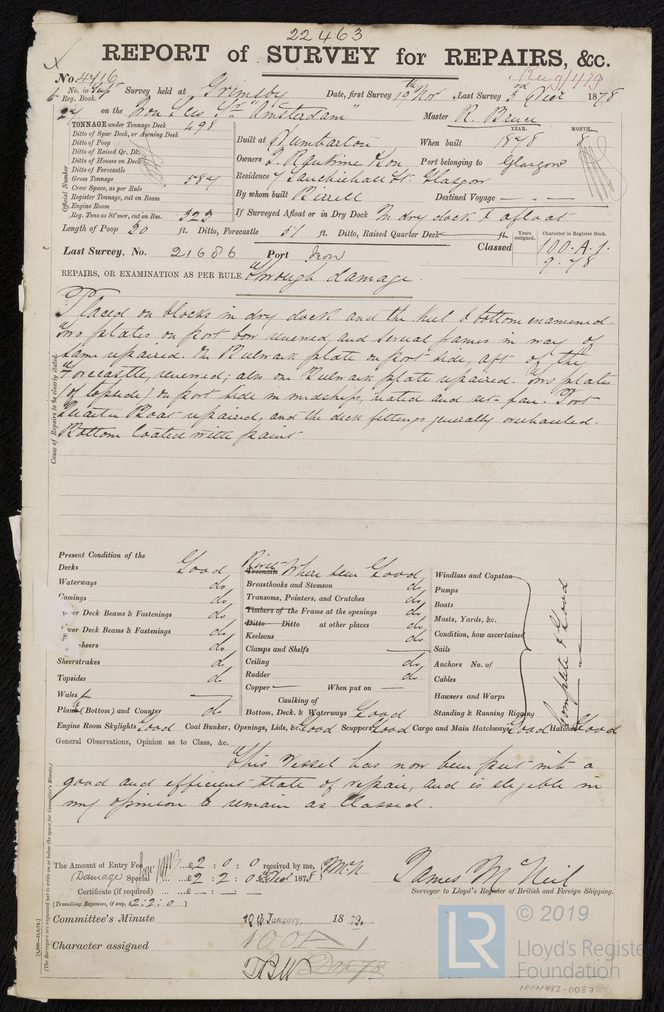 22463
REPORT of SURVEY for REPAIRS, &c.
No. 4416
No. in Supt Survey held at Grimsby Date, first Survey 19th Nov Last Survey 3rd Decr 1878
Reg. Book.
27 on the Iron Scw Sr "Amsterdam" Master R. Bruce
TONNAGE under Tonnage Deck 498
Ditto of Spar Deck, or Awning Deck
Ditto of Poop
Ditto of Raised Qr. Dk.
Ditto of Houses on Deck
Ditto of Forecastle
Gross Tonnage 584
Crew Space, as per Rule
Register Tonnage, cut on Beam
Engine Room
Reg. Tons as St'mer, cut on Bm. 323
Official Number
Built at Dumbarton When built YEAR. 1878 MONTH. 8
Owners J. Rankine & Son Port belonging to Glasgow
Residence 7 Sauchiehall St. Glasgow
By whom built Birrell Destined Voyage
If Surveyed Afloat or in Dry Dock In dry dock & afloat
Length of Poop 30 ft. Ditto, Forecastle 51 ft. Ditto, Raised Quarter Deck ft.
Last Survey, No. 21686 Port Iron Classed
Years assigned. Character in Register Book.
100.A.1.
9.78
REPAIRS, OR EXAMINATION AS PER RULE through damage.
Cause of Repairs to be clearly stated.
Placed on blocks in dry dock and the keel & bottom examined.
Two plates on port bow renewed and several frames in way of
same repaired. One Bulwark plate on port side, aft of the
Forecastle, renewed; also one Bulwark plate repaired. Two plates
(of topside) on port side in midships, heated and set fair. Port
Quarter Boat repaired, and the deck fittings generally overhauled.
Bottom coated with paint
Present Condition of the
Decks Good
Waterways do
Comings do
Upper Deck Beams & Fastenings do
Lower Deck Beams & Fastenings do
Sheerstrakes do
Topsides do
Wales
Plank (Bottom) and Counter do
Rivets Treenails Where seen Good
Breasthooks and Stemson do
Transoms, Pointers, and Crutches do
Timbers of the Frame at the openings do
Ditto Ditto at other places do
Keelsons do
Clamps and Shelfs
Ceiling do
Rudder do
Copper When put on
Caulking of
Bottom, Deck, & Waterways Good
Windlass and Capstan
Pumps
Boats
Masts, Yards, &c.
Condition, how ascertained
Sails
Anchors No. of
Cables
Hawsers and Warps
Standing & Running Rigging
Complete & Good
Engine Room Skylights Good Coal Bunker, Openings, Lids, &c. Good Scuppers Good Cargo and Main Hatchways Good Hatches Good
General Observations, Opinion as to Class, &c.
This Vessel has now been put into a
good and efficient state of repair, and is eligible in
my opinion to remain as Classed.
The Amount of Entry Fee £2 : 0 : 0 received by me,
(Damage) Special £2 : 2 : 0 Decr 1878
Certificate (if required) £
(Travelling Expenses, if any, £2:2:0)
James McNeil
Surveyor to Lloyd's Register of British and Foreign Shipping.
Committee's Minute 10th January, 1879.
Character assigned 100A1
© 2019
LR
Lloyd's Register
Foundation
IRON482-0087